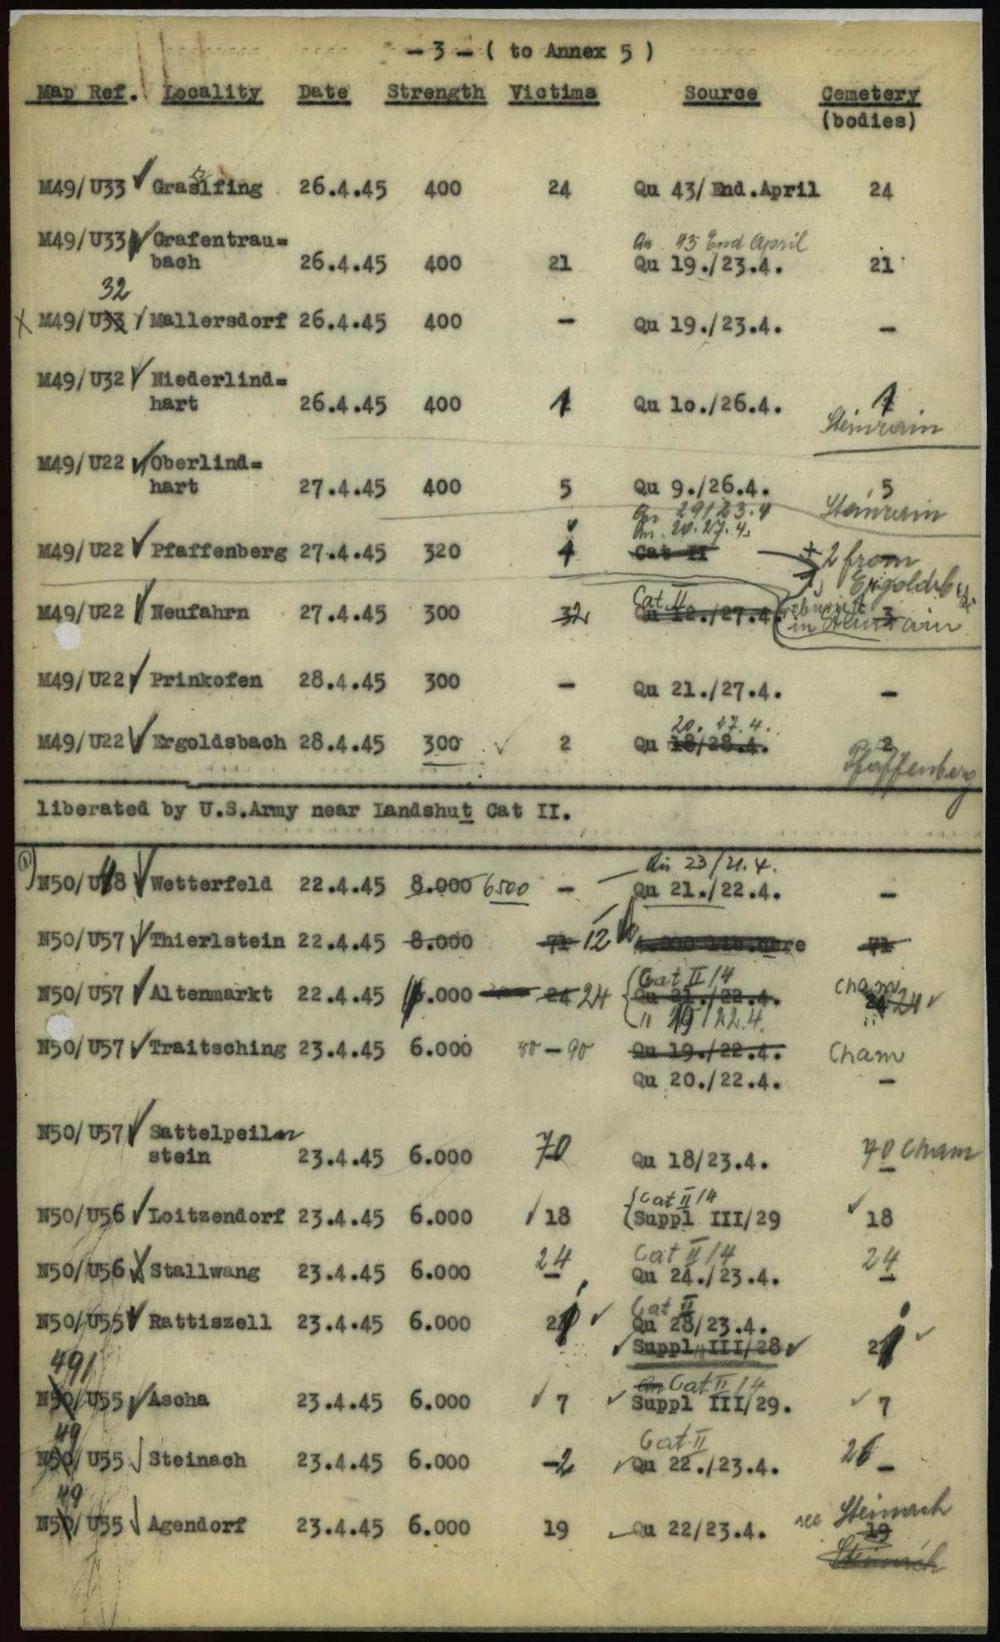 - 3 - ( to Annex 5 )
Map Ref. Locality Date Strength Victims Source Cemetery
(bodies)
M49/U33 Graslfing 26.4.45 400 24 Qu 43/ End.April 24
M49/U33 Grafentrau= Qu. 43 End April
bach 26.4.45 400 21 Qu 19./23.4. 21
32
X M49/U33 Mallersdorf 26.4.45 400 - Qu 19./23.4. -
M49/U32 Niederlind=
hart 26.4.45 400 1 Qu 1o./26.4. 1
Steinrain
M49/U22 Oberlind=
hart 27.4.45 400 5 Qu 9./26.4. 5
Qu 29/23.4 Steinrain
Qu. 20.27.4.
M49/U22 Pfaffenberg 27.4.45 320 4 Cat II + 2 from
Ergoldsb.
Cat II
M49/U22 Neufahrn 27.4.45 300 32 Qu 12./27.4. reburied 3
in Steinrain
M49/U22 Prinkofen 28.4.45 300 - Qu 21./27.4. -
20. 27.4.
M49/U22 Ergoldsbach 28.4.45 300 2 Qu 18/28.4. 2
Pfaffenberg
liberated by U.S.Army near Landshut Cat II.
Qu 23/21.4.
1) N50/U48 Wetterfeld 22.4.45 8.000 6500 - Qu 21./22.4. -
N50/U57 Thierlstein 22.4.45 8.000 71 12 71
Cat II/4 Cham
N50/U57 Altenmarkt 22.4.45 6.000 24 24 Qu 21./22.4. 24 24
" 19/22.4.
N50/U57 Traitsching 23.4.45 6.000 80-90 Qu 19./22.4. Cham
Qu 20./22.4. -
N50/U57 Sattelpeiln
stein 23.4.45 6.000 70 Qu 18/23.4. 70 Cham
Cat II/4
N50/U56 Loitzendorf 23.4.45 6.000 18 Suppl III/29 18
Cat II/4
N50/U56 Stallwang 23.4.45 6.000 24 Qu 24./23.4. 24
Cat II
N50/U55 Rattiszell 23.4.45 6.000 Qu 28/23.4.
Suppl III/28
49/ Qu Cat II/4
N50/U55 Ascha 23.4.45 6.000 7 Suppl III/29. 7
49 Cat II
N50/U55 Steinach 23.4.45 6.000 -2 Qu 22./23.4. 26 -
49 see Steinach
N50/U55 Agendorf 23.4.45 6.000 19 Qu 22/23.4. 19
Steinach